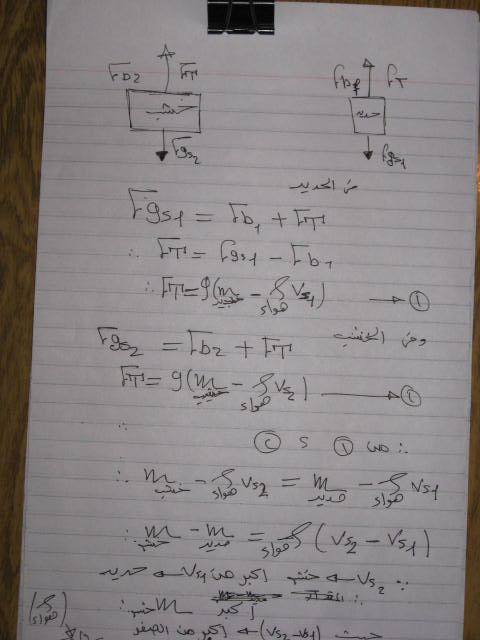 Fb2 FT Fb1 FT
خشب حديد
Fgs2 Fgs1
من الحديد
Fgs1 = Fb1 + FT
∴ FT = Fgs1 - Fb1
∴ FT = g(m حديد - ρ هواء Vs1) → ①
ومن الخشب
Fgs2 = Fb2 + FT
FT = g(m خشب - ρ هواء Vs2) → ②
∴ من ① و ②
∴ m خشب - ρ هواء Vs2 = m حديد - ρ هواء Vs1
∴ m خشب - m حديد = ρ هواء (Vs2 - Vs1)
∵ Vs2 خشب أكبر من Vs1 حديد
∴ المقدار m خشب أكبر
حيث (Vs2-Vs1) أكبر من الصفر
(ρ هواء)